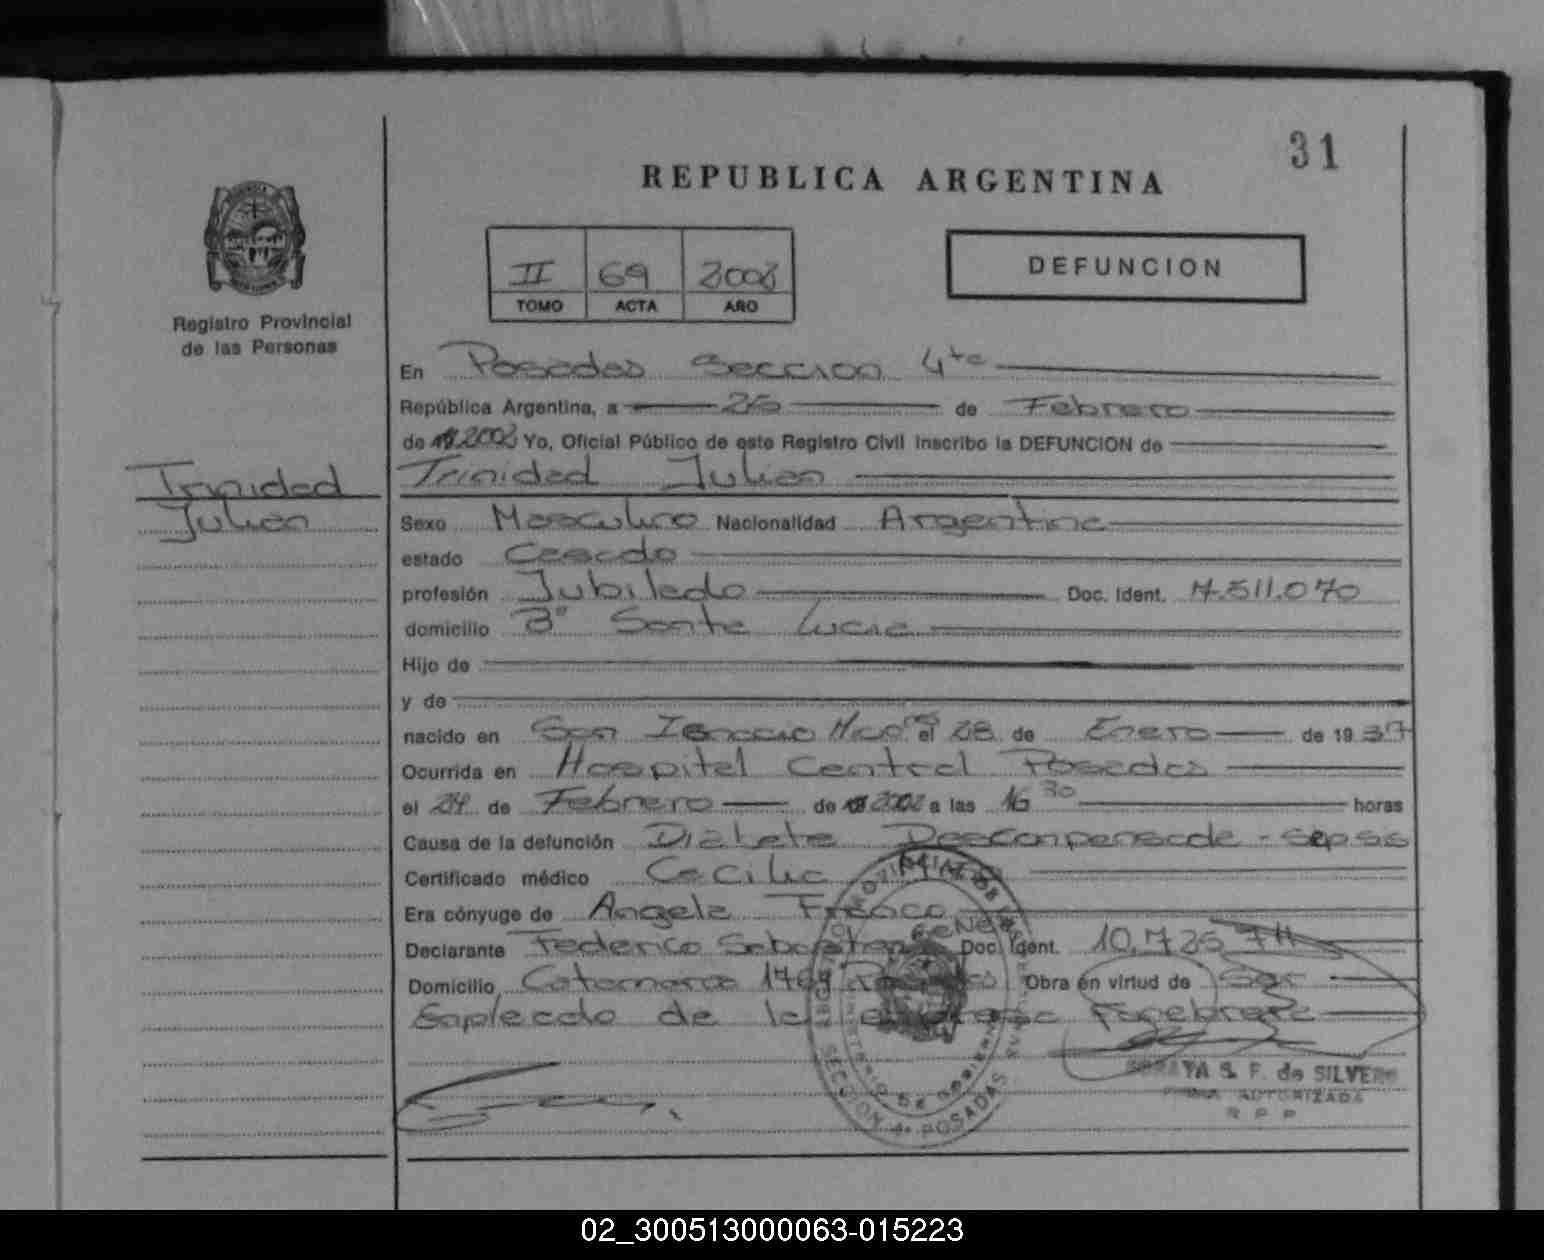 31
REPUBLICA ARGENTINA
II 69 2008
TOMO ACTA AÑO
DEFUNCION
Registro Provincial
de las Personas
En Posadas Seccion 4ta
República Argentina, a 26 de Febrero
de 2008 Yo, Oficial Público de este Registro Civil inscribo la DEFUNCION de
Trinidad Julian
Trinidad
Julian
Sexo Masculino Nacionalidad Argentina
estado Casado
profesión Jubilado Doc. Ident. 7.511.070
domicilio Bº Santa Lucia
Hijo de
y de
nacido en San Ignacio el 28 de Enero de 1937
Ocurrida en Hospital Central Posadas
el 24 de Febrero de 2008 a las 16 30 horas
Causa de la defunción Diabete Descompensada - sepsis
Certificado médico Cecilia
Era cónyuge de Angela Franco
Declarante Federico Sebastian Doc. Ident. 10.725
Domicilio Catamarca Obra en virtud de Ser
Empleado de la Funebrera
SECCION 4ª POSADAS
SORAYA S. F. de SILVERO
FIRMA AUTORIZADA
R P P
02_300513000063-015223